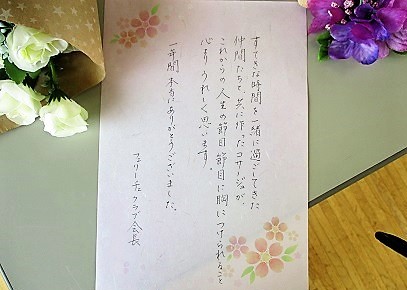 すてきな時間を一緒に過ごしてきた
仲間たちで、共に作ったコサージュが
これからの人生の節目節目に胸につけられること
心よりうれしく思います。
一年間本当にありがとうございました。
フェリーチェクラブ会長